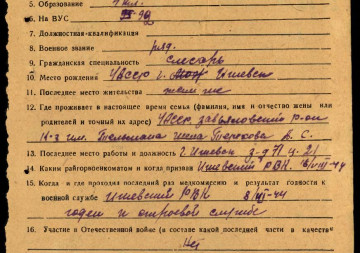 5. Образование 4 кл.
6. На ВУС
7. Должностная квалификация
8. Военное звание ряд.
9. Гражданская специальность слесарь
10. Место рождения УАССР г. Ижевск
11. Последнее место жительства там же
12. Где проживает в настоящее время семья (фамилия, имя и отчество жены или
родителей и точный их адрес) УАССР Завьяловский р-он
к-з им. Тельмана жена С.
13. Последнее место работы и должность г. Ижевск
14. Каким райгорвоенкоматом и когда призван Ижевский РВК
15. Когда и где проходил последний раз медкомиссию и результат годности к
военной службе Ижевский РВК 8/VII-44
годен к строевой службе
16. Участие в Отечественной войне (в составе какой последней части в качестве
Нет